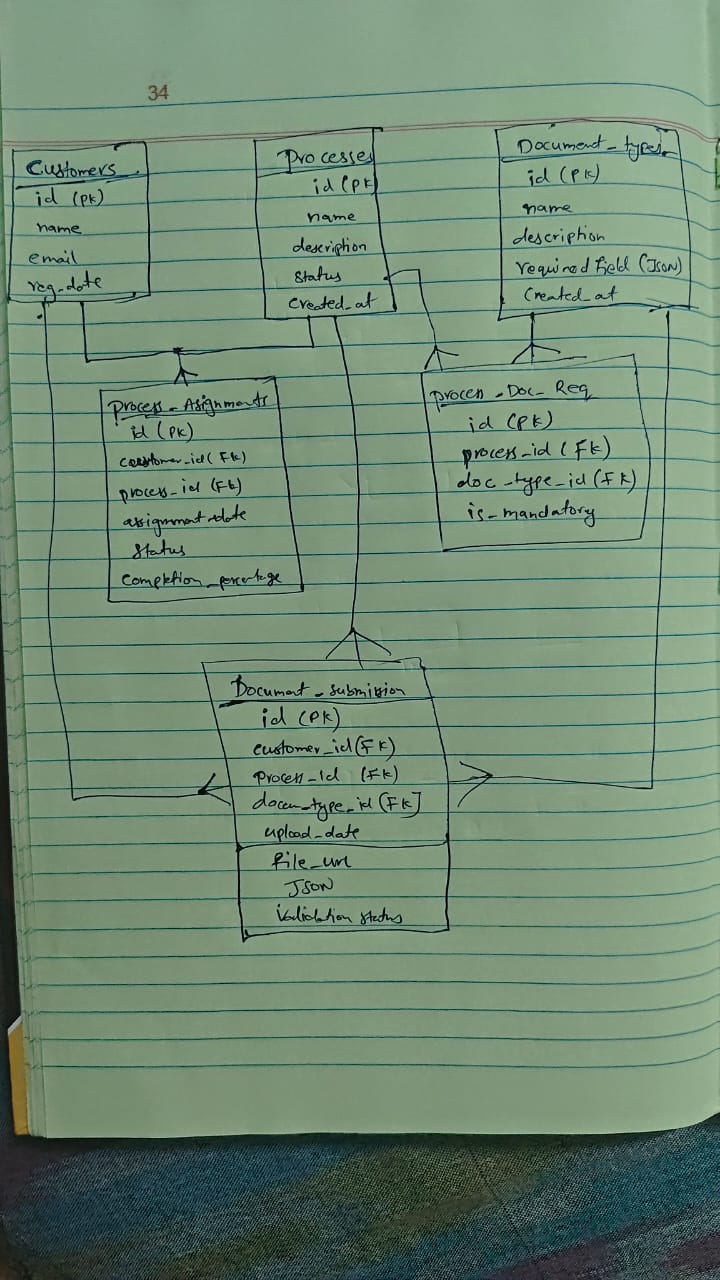 34
Customers
id (PK)
name
email
reg_date
Processes
id (PK)
name
description
status
created_at
Document_types
id (PK)
name
description
required field (JSON)
created_at
Process_Asignments
id (PK)
customer_id (FK)
process_id (FK)
assignment_date
status
completion_percentage
Process_Doc_Req
id (PK)
process_id (FK)
doc_type_id (FK)
is_mandatory
Document_submission
id (PK)
customer_id (FK)
process_id (FK)
docum_type_id (FK]
upload_date
file_url
JSON
Validation status